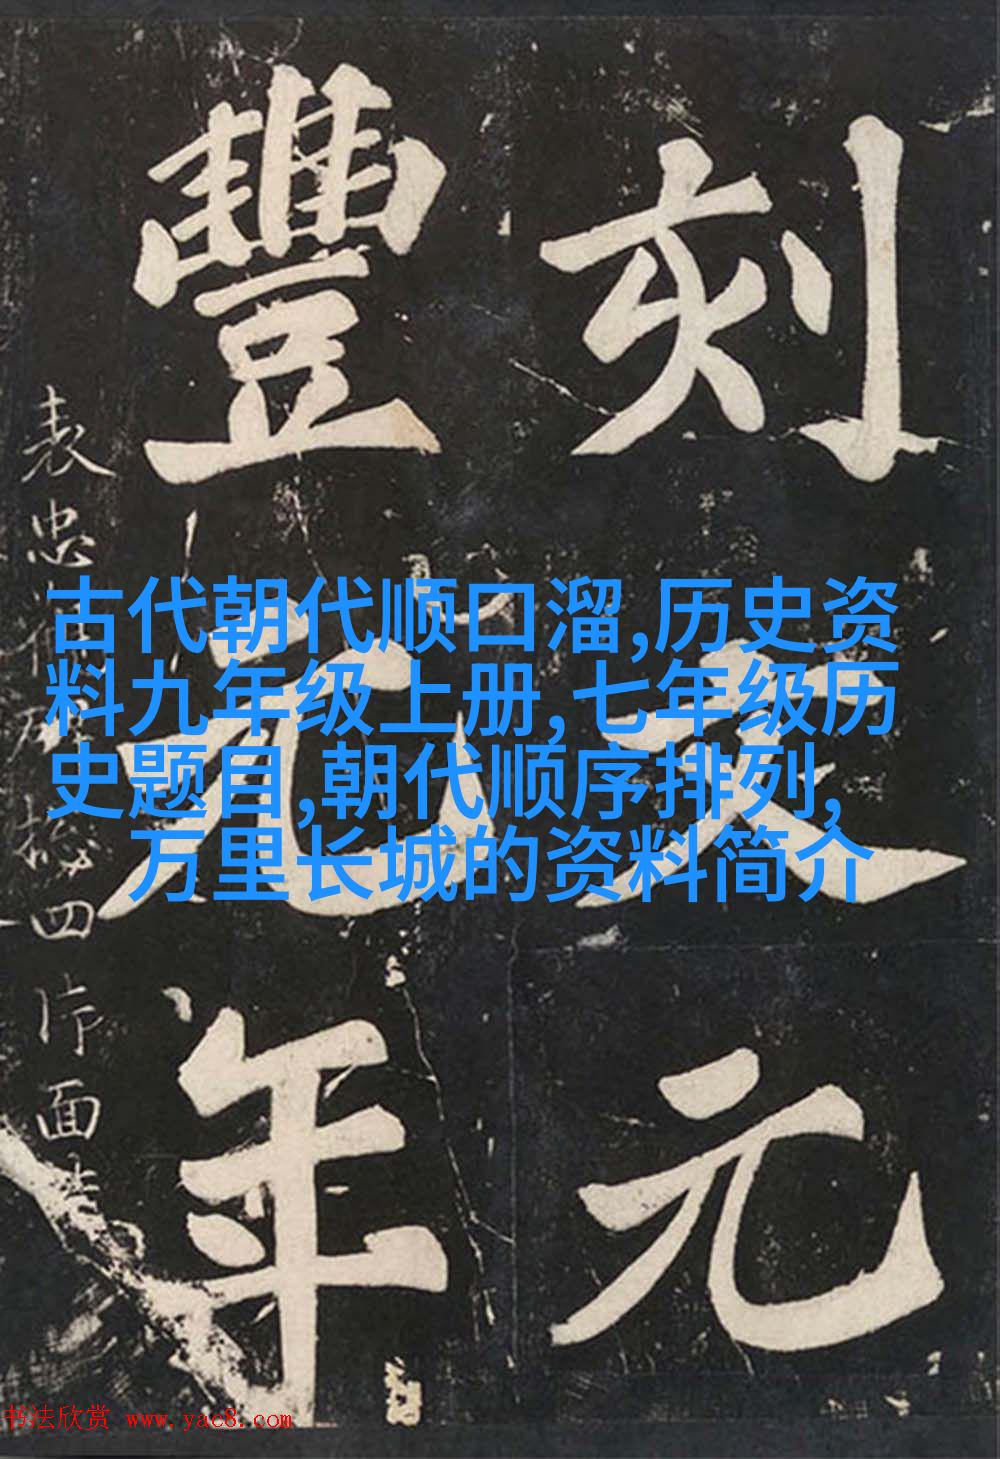 古代朝代顺口溜,历史资
料九年级上册,七年级历
史题目,朝代顺序排列,
万里长城的资料简介
刻
元
豐
元
年
表忠
四片面
书法欣赏 www.yac8.com